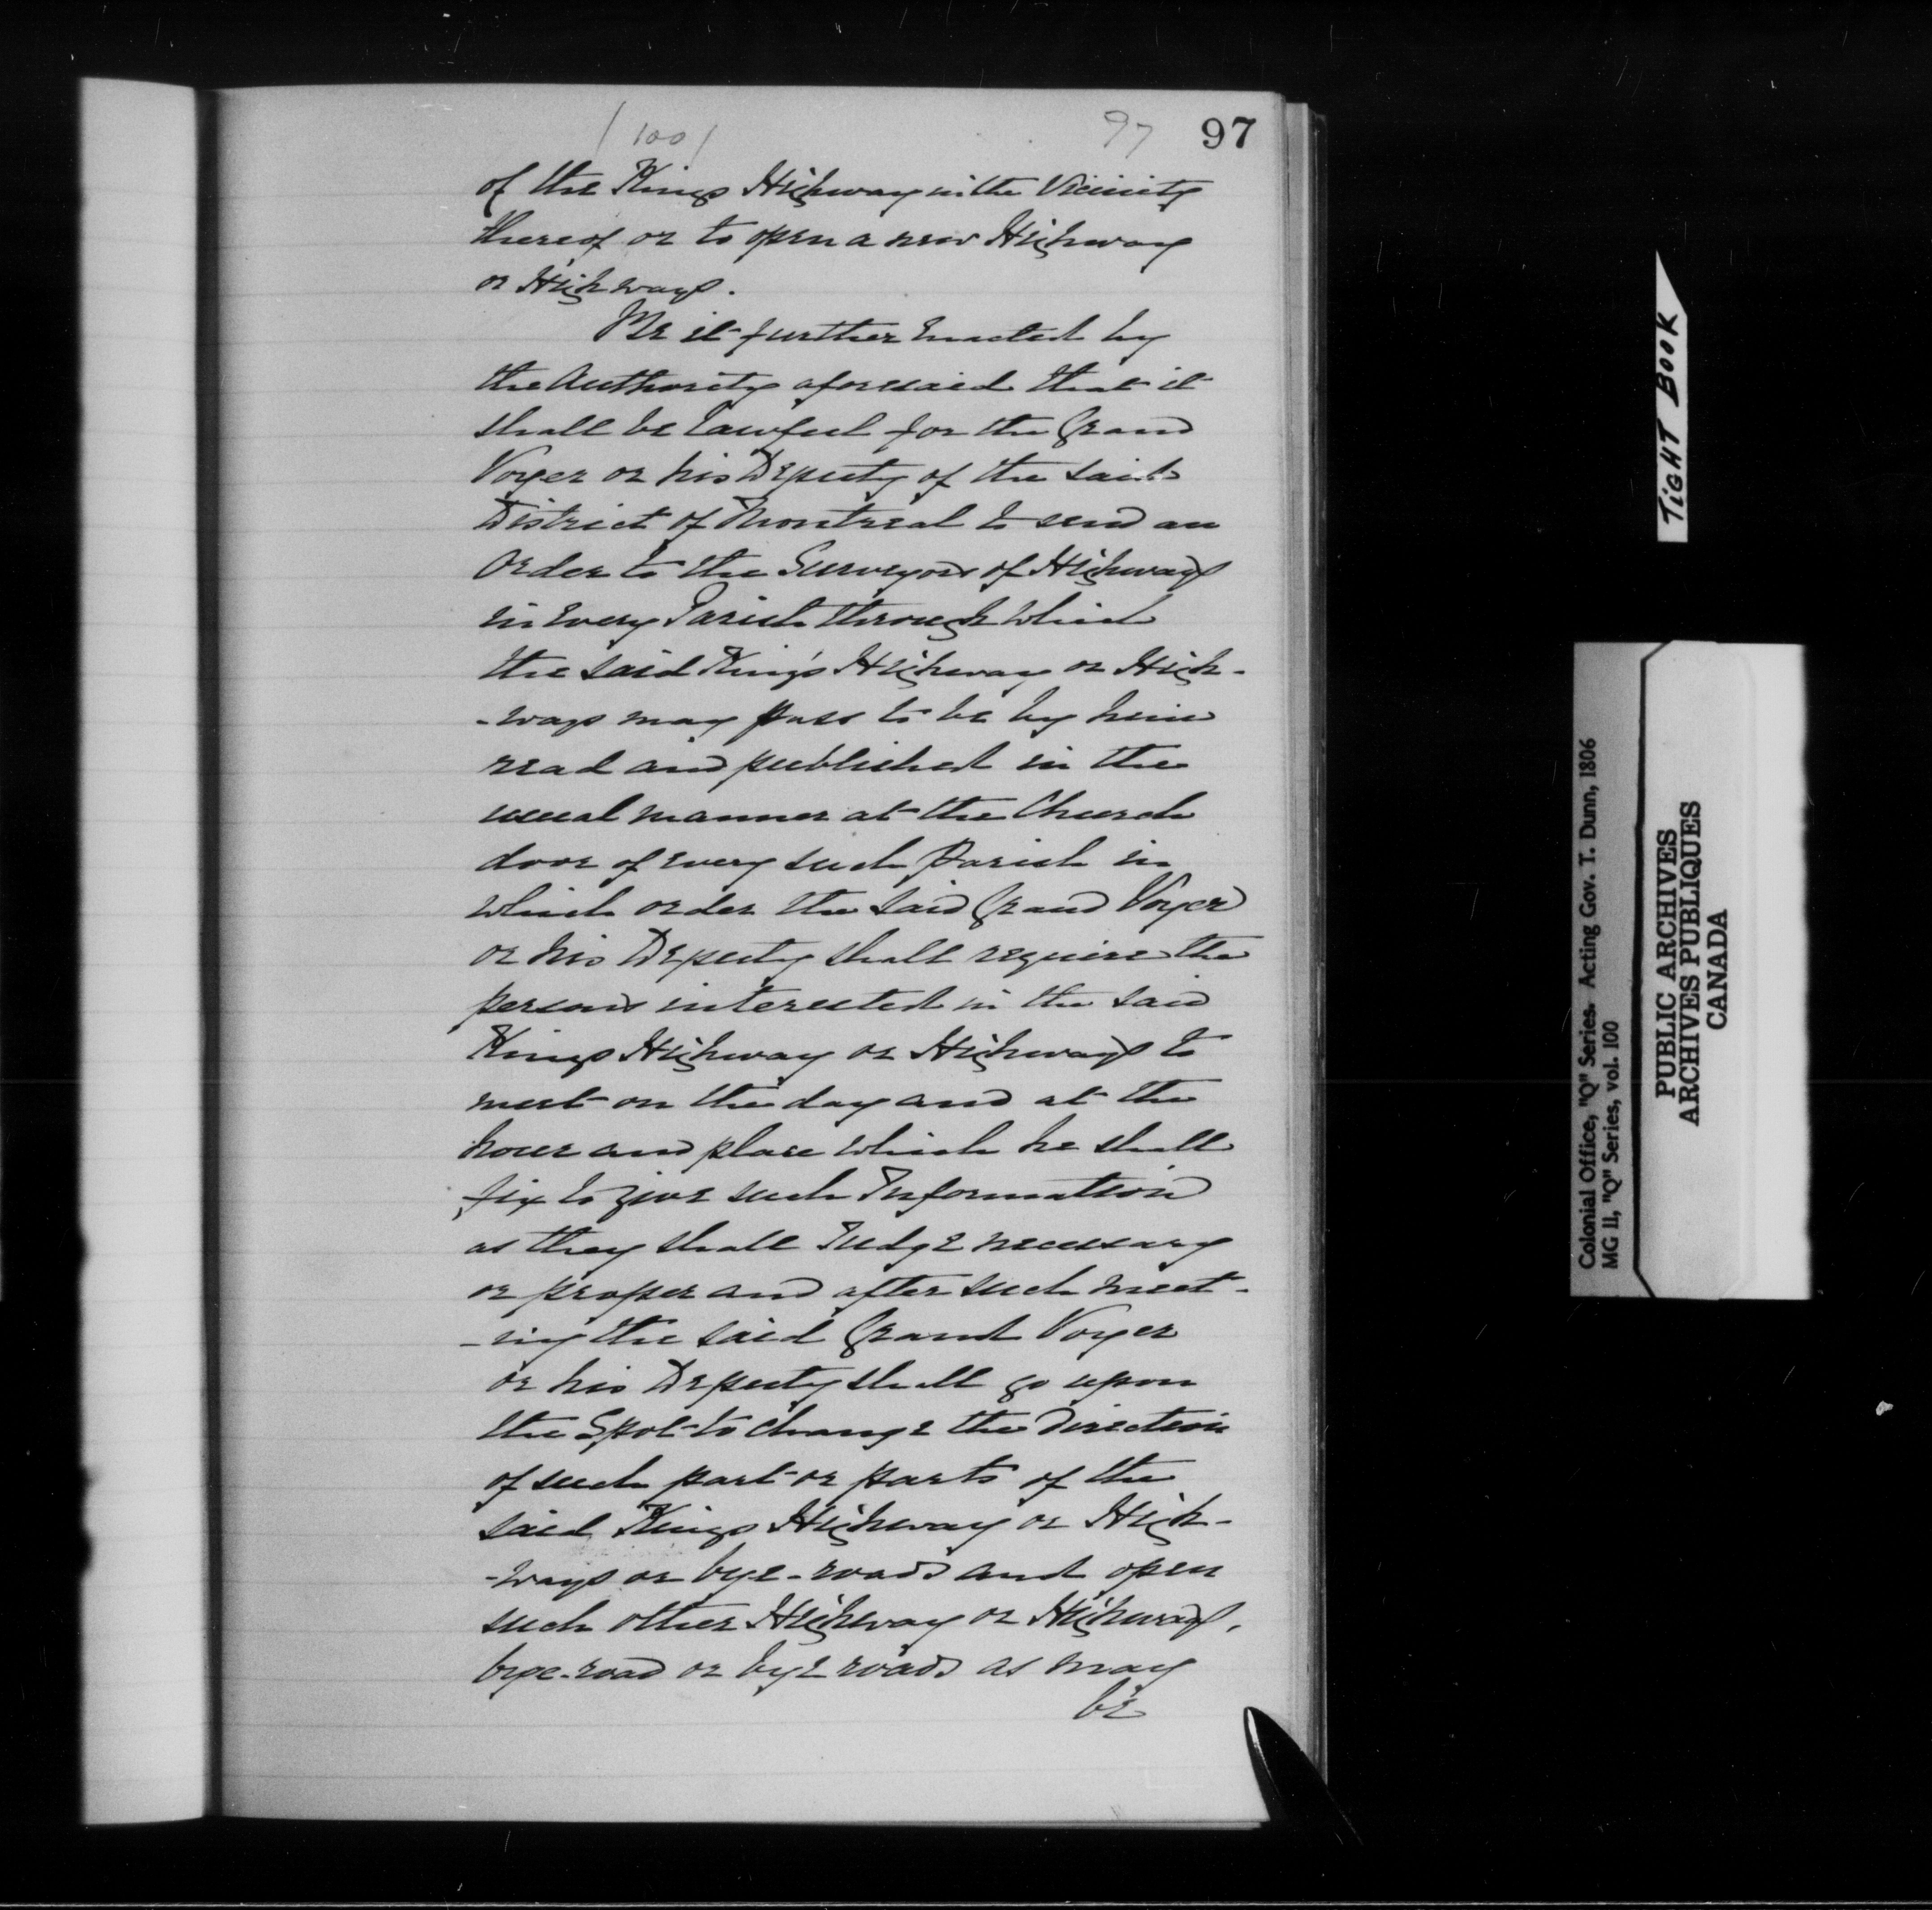 / 100 /
97
97
of the Kings Highway in the Vicinity
thereof or to open a new Highway
or Highways.
Be it further Enacted by
the Authority aforesaid that it
shall be lawful for the Grand
Voyer or his Deputy of the said
District of Montreal to send an
Order to the Surveyors of Highways
in every Parish through which
the said King's Highway or High-
-ways may pass to be by him
read and published in the
usual manner at the Church
door of every such Parish in
which order the said Grand Voyer
or his Deputy shall require the
persons interested in the said
Kings Highway or Highways to
meet on the day and at the
hour and place which he shall
fix to give such Information
as they shall Judge necessary
or proper and after such meet-
-ing the said Grand Voyer
or his Deputy shall go upon
the Spot to change the Direction
of such part or parts of the
said Kings Highway or High-
-ways or bye-roads and open
such other Highway or Highways,
bye-road or bye roads as may
be
TIGHT BOOK
Colonial Office, "Q" Series. Acting Gov. T. Dunn, 1806
MG 11, "Q" Series, vol. 100
PUBLIC ARCHIVES
ARCHIVES PUBLIQUES
CANADA